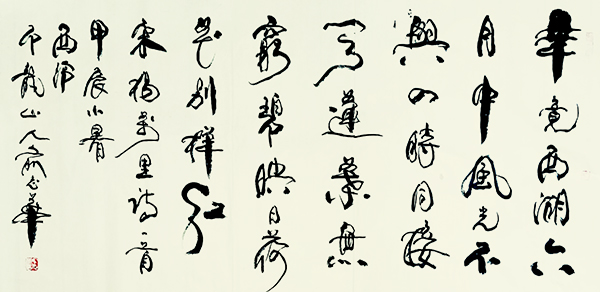 畢竟西湖六
月中風光不
與四時同接
天蓮葉無
窮碧映日荷
花別樣紅
宋楊萬里詩一首
甲辰小暑
西
龍山人華